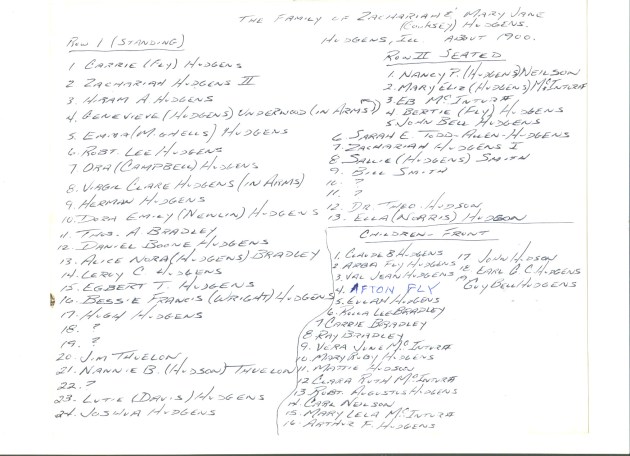 The Family of Zachariah & Mary Jane
(Cooksey) Hudgens.
Hudgens, Ill About 1900.
Row 1 (Standing)
1. Carrie (Fly) Hudgens
2 Zachariah Hudgens II
3. Hiram A. Hudgens
4. Genevieve (Hudgens) Underwood (in Arms)
5. Emma (M. Ghells) Hudgens
6. Robt. Lee Hudgens
7. Ora (Campbell) Hudgens
8. Virgil Clare Hudgens (in Arms)
9. Herman Hudgens
10. Dora Emily (Newlin) Hudgens
11. Thos. A Bradley
12. Daniel Boone Hudgens
13. Alice Nora (Hudgens) Bradley
14. Leroy C Hudgens
15. Egbert T. Hudgens
16. Bessie Francis (Wright) Hudgens
17. Hugh Hudgens
18. ?
19. ?
20. Jim Thuelon
21. Nannie B. (Hudson) Thuelon
22. ?
23. Lutie (Davis) Hudgens
24. Joshua Hudgens
Row II Seated
1. Nancy P. (Hudgens) Neilson
2. Mary Eliz (Hudgens) McInturff
3. Eb McInturff
4. Bertie (Fly) Hudgens
5. John Bell Hudgens
6. Sarah E. Todd-Allen-Hudgens
7. Zachariah Hudgens I
8. Sallie (Hudgens) Smith
9. Bill Smith
10. ?
11. ?
12. Dr. Theo. Hudson
13. Ella (Norris) Hudson
Children - Front
1. Claude B Hudgens
2. Arba Fly Hudgens
3. Val Jean Hudgens
4. Afton Fly
5. Ellan Hudgens
6. Kula Lee Bradley
7 Carrie Bradley
8 Ray Bradley
9. Vera June McInturff
10. Mary Ruby Hudgens
11. Mattie Hudson
12 Clara Ruth McInturff
13. Robt. Augustus Hudgens
14. Carl Neilson
15. Mary Lela McInturff
16. Arthur F. Hudgens
17 John Hudson
18 Earl G C Hudgens
19 Guy Bell Hudgens